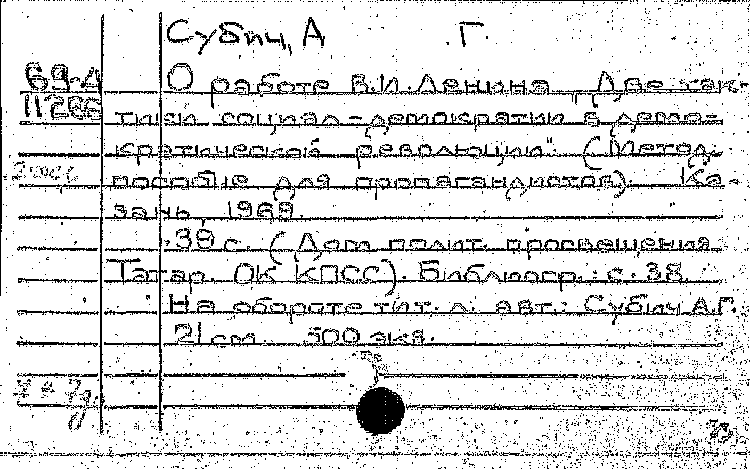 Субич, А Г.
69-Д О работе В.И.Ленина „Две так-
11286 тики социал-демократии в демо-
кратической революции". (Метод.
2 экз пособие для пропагандистов). Ка-
зань, 1969.
38 с. (Дом полит. просвещения
Татар. ОК КПСС). Библиогр.: с. 38
На обороте тит. л. авт.: Субич А.Г.
21 см 500 экз.